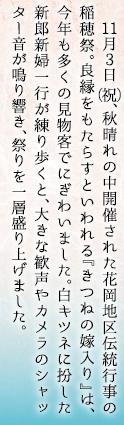 11月3日㈷、秋晴れの中開催された花岡地区伝統行事の
稲穂祭。良縁をもたらすといわれる『きつねの嫁入り』は、
今年も多くの見物客でにぎわいました。白キツネに扮した
新郎新婦一行が練り歩くと、大きな歓声やカメラのシャッ
ター音が鳴り響き、祭りを一層盛り上げました。